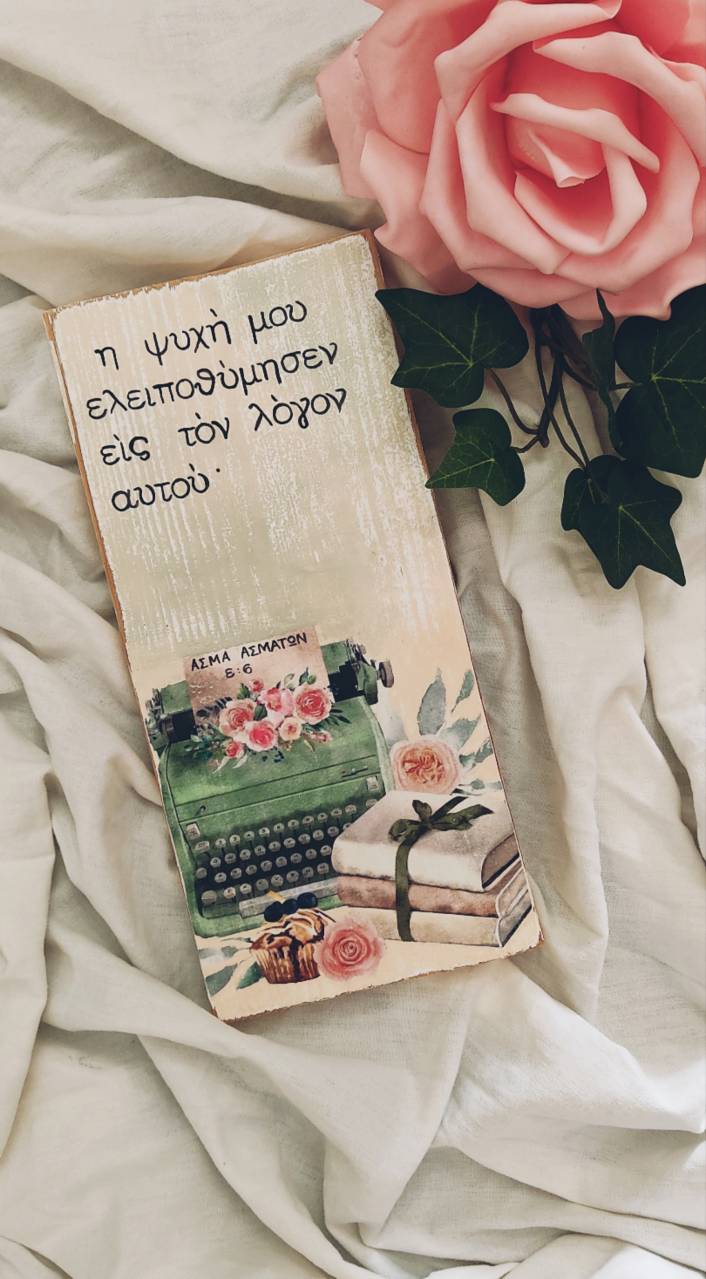 η ψυχὴ μου
ελειποθὺμησεν
εὶς τὸν λὸγον
αυτοὺ·
ΑΣΜΑ ΑΣΜΑΤΩΝ
ε:6